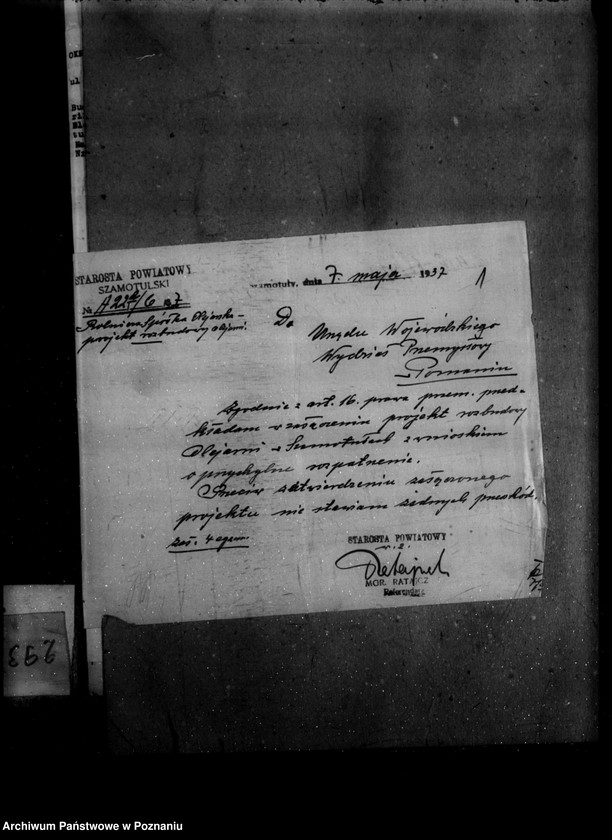 STAROSTA POWIATOWY
SZAMOTULSKI
Szamotuły, dnia 7. maja 1937
1
№ A 22/6 37
Rolnicza Spółka Olejarska –
projekt rozbudowy olejarni.
Do
Urzędu Wojewódzkiego
Wydział Przemysłowy
w Poznaniu
Zgodnie z art. 16. prawa przem. przed-
kładam w załączeniu projekt rozbudowy
Olejarni w Szamotułach z wnioskiem
o przychylne rozpatrzenie.
Przeciw zatwierdzeniu załączonego
projektu nie stawiam żadnych przeszkód.
zał. 4 egzem.
STAROSTA POWIATOWY
w. z.
Ratajcz
MGR. RATAJCZ
Referendarz
293
Archiwum Państwowe w Poznaniu